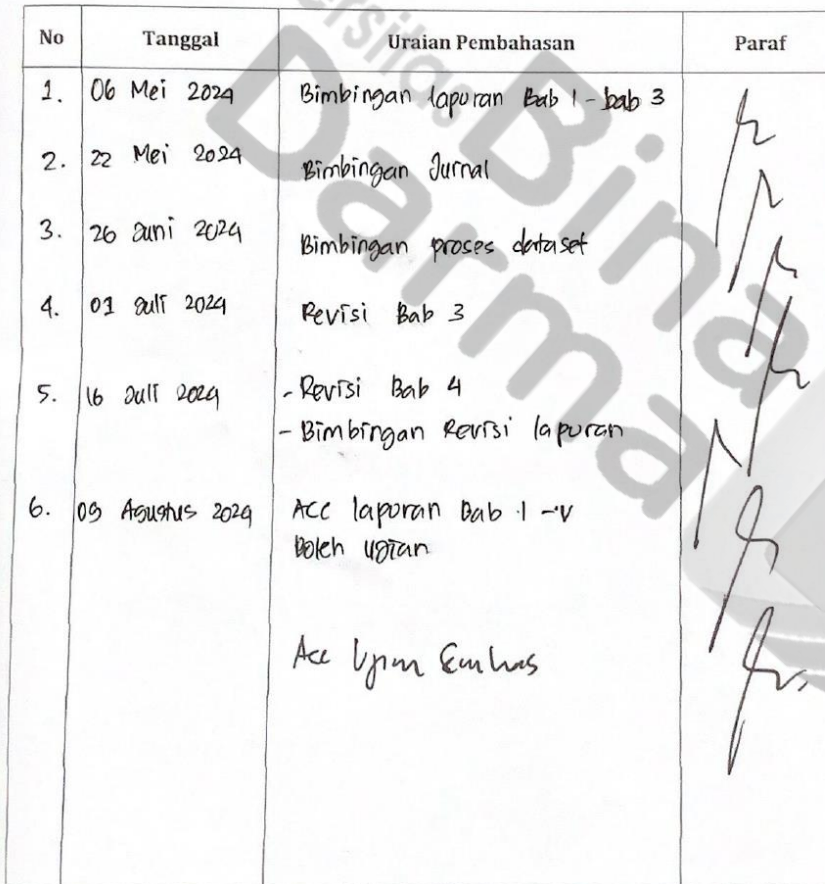 No Tanggal Uraian Pembahasan Paraf
1. 06 Mei 2024 Bimbingan laporan Bab 1 - bab 3
2. 22 Mei 2024 Bimbingan Jurnal
3. 26 Juni 2024 Bimbingan proses dataset
4. 01 Juli 2024 Revisi Bab 3
5. 16 Juli 2024 - Revisi Bab 4
- Bimbingan Revisi laporan
6. 09 Agustus 2024 Acc laporan Bab 1 - V
Boleh Ujian
Acc Ujian Semhas
Bina
Darma